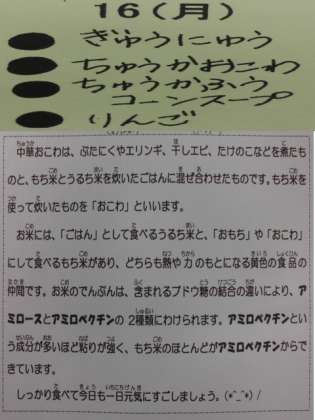 16(月)
ぎゅうにゅう
ちゅうかおこわ
ちゅうかふう
コーンスープ
りんご
中華おこわは、ぶたにくやエリンギ、干しエビ、たけのこなどを煮たも
のと、もち米とうるち米を炊いたごはんに混ぜ合わせたものです。もち米を
使って炊いたものを「おこわ」といいます。
お米には、「ごはん」として食べるうるち米と、「おもち」や「おこわ」
にして食べるもち米があり、どちらも熱や力のもとになる黄色の食品の
仲間です。お米のでんぷんは、含まれるブドウ糖の結合の違いにより、ア
ミロースとアミロペクチンの2種類にわけられます。アミロペクチンとい
う成分が多いほど粘りが強く、もち米のほとんどがアミロペクチンからで
きています。
しっかり食べて今日も一日元気にすごしましょう。(*^_^*)/